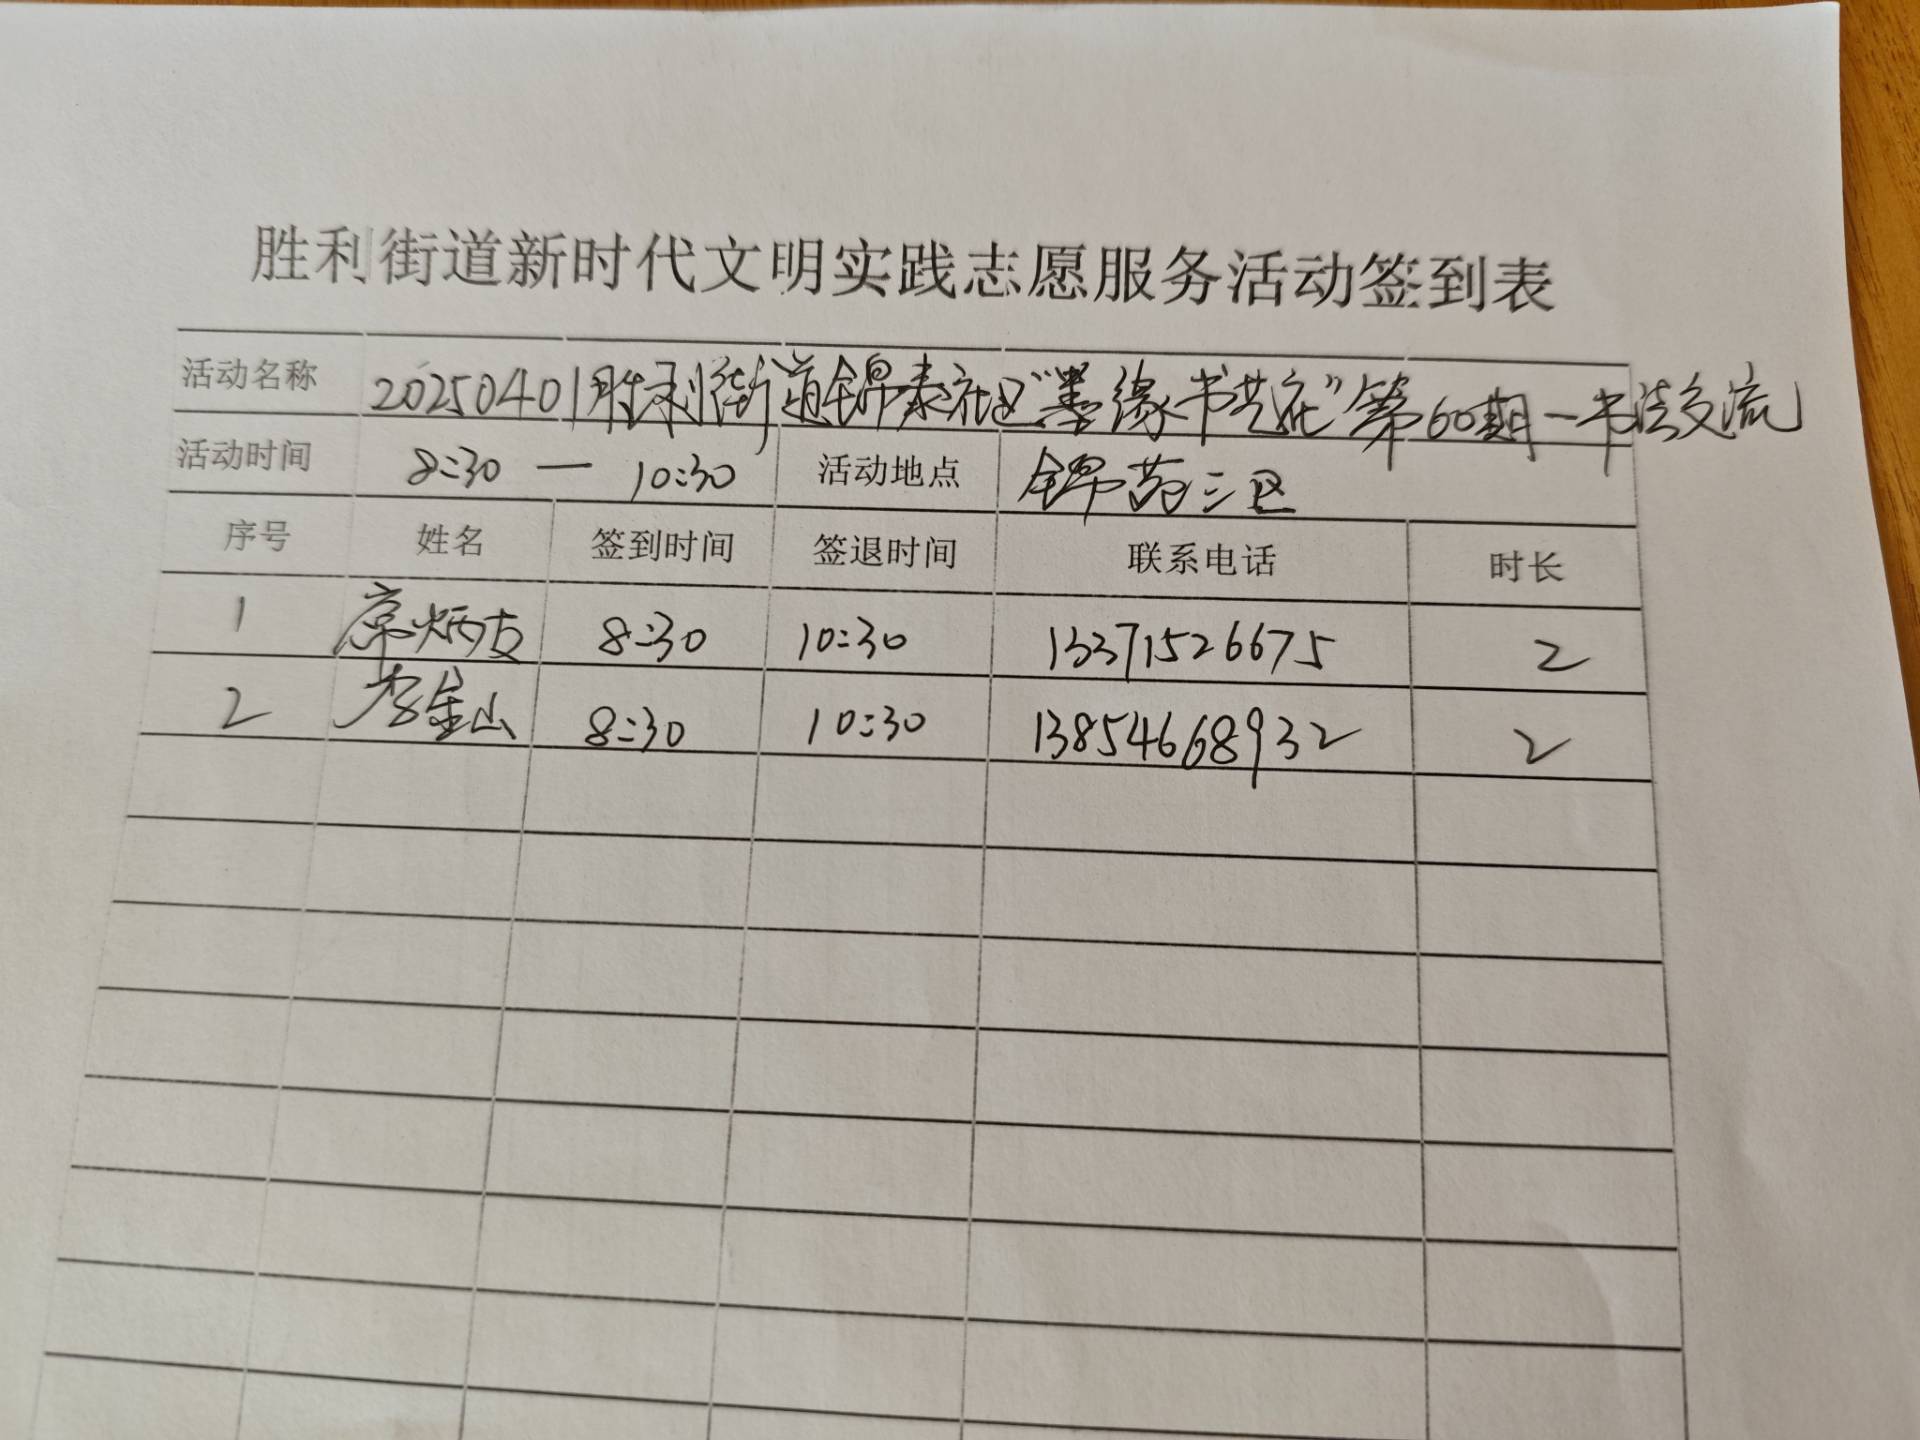 胜利街道新时代文明实践志愿服务活动签到表
活动名称 20250401胜利街道锦泰社区“墨缘书苑”第60期一书法交流
活动时间 8:30 — 10:30 活动地点 锦苑三区
序号 姓名 签到时间 签退时间 联系电话 时长
1 8:30 10:30 13371526675 2
2 李金山 8:30 10:30 13854668932 2